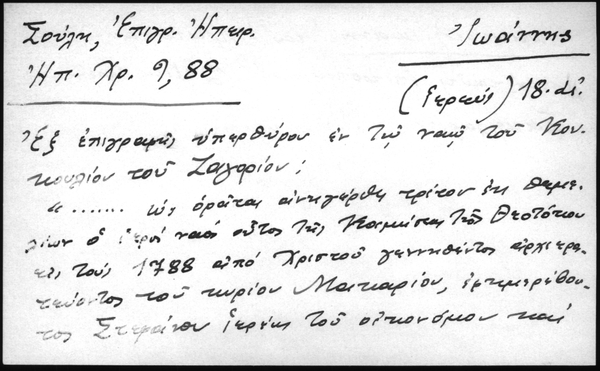 Σούλη, Ἐπιγρ. Ἠπειρ.
Ἰωάννης
Ἠπ. Χρ. 9, 88
(Ἱερεύς) 18. αἰ.
Ἐξ ἐπιγραφῆς ὑπερθύρου ἐν τῷ ναῷ τοῦ Κου-
κουλίου τοῦ Ζαγορίου:
"....... ὡς ὁρᾶται ἀνηγέρθη τρίτον ἐκ θεμε-
λίων ὁ ἱερός ναός οὗτος τῆς Κοιμήσεως τῆς Θεοτόκου
εἰς τούς 1788 ἀπό Χριστοῦ γεννηθέντος ἀρχιερα-
τεύοντος τοῦ κυρίου Μακαρίου, ἐφημερεύον-
τος Στεφάνου ἱερέως τοῦ οἰκονόμου καί